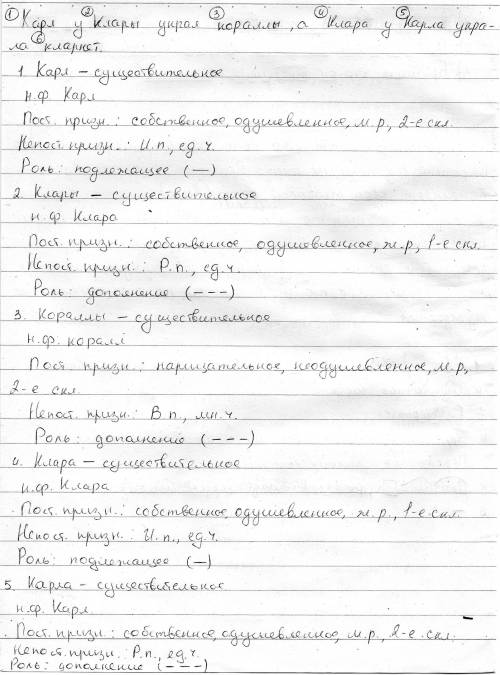 ① Карл у ② Клары украл ③ кораллы, а ④ Клара у ⑤ Карла укра-
ла ⑥ кларнет.
1. Карл – существительное
н.ф. Карл
Пост. призн.: собственное, одушевленное, м.р., 2-е скл.
Непост. призн.: И.п., ед.ч.
Роль: подлежащее (—)
2. Клары – существительное
н.ф. Клара
Пост. призн.: собственное, одушевленное, ж.р, 1-е скл.
Непост. призн.: Р.п., ед.ч.
Роль: дополнение (---)
3. Кораллы – существительное
н.ф. коралл
Пост. призн.: нарицательное, неодушевленное, м.р,
2-е скл.
Непост. призн.: В п., мн.ч.
Роль: дополнение (---)
4. Клара – существительное
н.ф. Клара
Пост. призн.: собственное, одушевленное, ж.р., 1-е скл.
Непост. призн.: И.п., ед.ч.
Роль: подлежащее (—)
5. Карла – существительное
н.ф. Карл.
Пост. призн: собственное, одушевленное, м.р., 2-е скл.
Непост. призн.: Р.п., ед.ч.
Роль: дополнение (---)